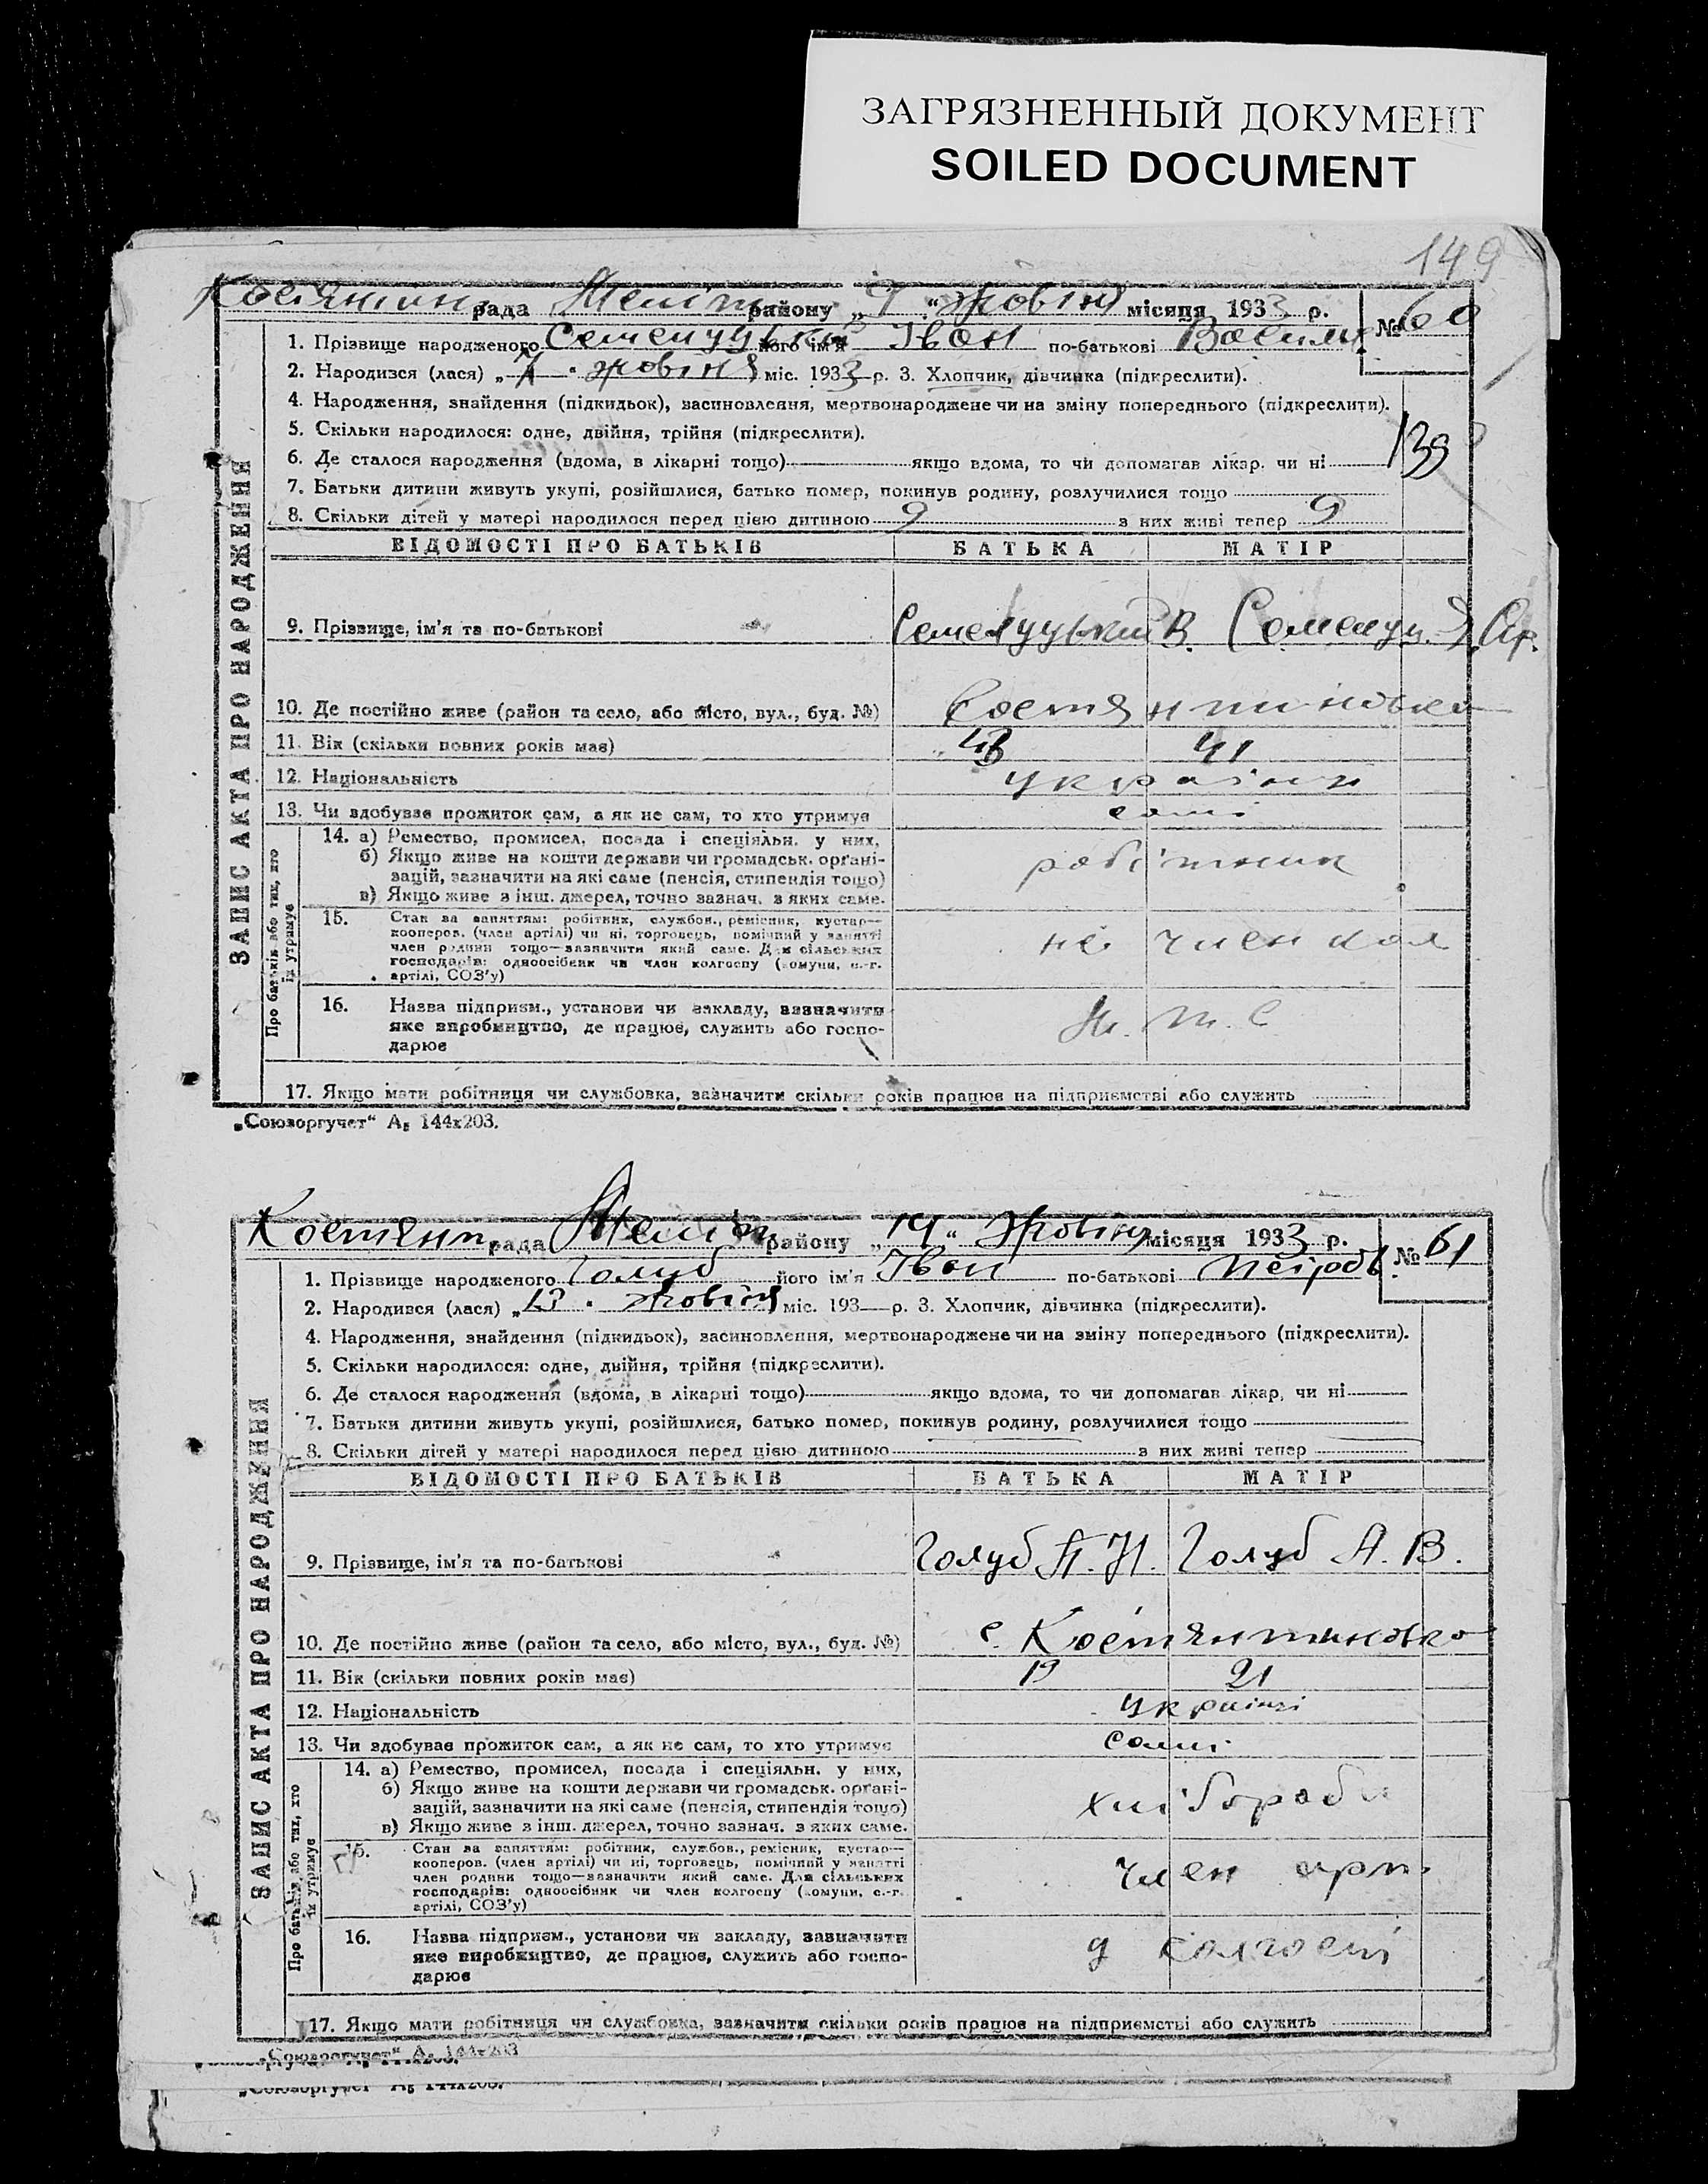 ЗАГРЯЗНЕННЫЙ ДОКУМЕНТ
SOILED DOCUMENT
149
рада Меліт району „ “ Жовтня місяця 1933 р. № 60
1. Прізвище народженого його ім'я Іван по-батькові Василь
2. Народився (лася) „ “ жовтня міс. 1933 р. 3. Хлопчик, дівчинка (підкреслити).
4. Народження, знайдення (підкидьок), засиновлення, мертвонароджене чи на зміну попереднього (підкреслити).
5. Скільки народилося: одне, двійня, трійня (підкреслити).
139
6. Де сталося народження (вдома, в лікарні тощо) якщо вдома, то чи допомагав лікар, чи ні
7. Батьки дитини живуть укупі, розійшлися, батько помер, покинув родину, розлучилися тощо
8. Скільки дітей у матері народилося перед цією дитиною 9 з них живі тепер 9
ЗАПИС АКТА ПРО НАРОДЖЕННЯ
ВІДОМОСТІ ПРО БАТЬКІВ БАТЬКА МАТІР
9. Прізвище, ім'я та по-батькові В.
10. Де постійно живе (район та село, або місто, вул., буд. №) Костянтиновка
11. Вік (скільки повних років має) 43 41
12. Національність українці
13. Чи здобуває прожиток сам, а як не сам, то хто утримує самі
Про батьків або тих, хто їх утримує
14. а) Ремество, промисел, посада і спеціяльн. у них,
б) Якщо живе на кошти держави чи громадськ. орґані-
зацій, зазначити на які саме (пенсія, стипендія тощо) робітник
в) Якщо живе з інш. джерел, точно зазнач. з яких саме.
15. Стан за заняттям: робітник, службов., ремісник, кустар—
кооперов. (член артілі) чи ні, торговець, помічний у занятті
член родини тощо—зазначити який саме. Для сільських не член кол
господарів: одноосібник чи член колгоспу (комуни, с.-г.
артілі, СОЗ'у)
16. Назва підприєм., установи чи закладу, зазначити
яке виробництво, де працює, служить або госпо- М. т. С
дарює
17. Якщо мати робітниця чи службовка, зазначити скільки років працює на підприємстві або служить
„Союзоргучет“ А5 144х203.
Костянт. рада Меліт району „14“ Жовтня місяця 1933 р. № 61
1. Прізвище народженого Голуб його ім'я Іван по-батькові Петров
2. Народився (лася) „13 “ жовтня міс. 193 р. 3. Хлопчик, дівчинка (підкреслити).
4. Народження, знайдення (підкидьок), засиновлення, мертвонароджене чи на зміну попереднього (підкреслити).
5. Скільки народилося: одне, двійня, трійня (підкреслити).
6. Де сталося народження (вдома, в лікарні тощо) якщо вдома, то чи допомагав лікар, чи ні
7. Батьки дитини живуть укупі, розійшлися, батько помер, покинув родину, розлучилися тощо
8. Скільки дітей у матері народилося перед цією дитиною з них живі тепер
ЗАПИС АКТА ПРО НАРОДЖЕННЯ
ВІДОМОСТІ ПРО БАТЬКІВ БАТЬКА МАТІР
9. Прізвище, ім'я та по-батькові Голуб П. Н. Голуб А. В.
10. Де постійно живе (район та село, або місто, вул., буд. №) с. Костянтиновка
11. Вік (скільки повних років має) 19 21
12. Національність українці
13. Чи здобуває прожиток сам, а як не сам, то хто утримує самі
Про батьків або тих, хто їх утримує
14. а) Ремество, промисел, посада і спеціяльн. у них,
б) Якщо живе на кошти держави чи громадськ. орґані-
зацій, зазначити на які саме (пенсія, стипендія тощо) хліборобы
в) Якщо живе з інш. джерел, точно зазнач. з яких саме.
15. Стан за заняттям: робітник, службов., ремісник, кустар—
кооперов. (член артілі) чи ні, торговець, помічний у занятті
член родини тощо—зазначити який саме. Для сільських член арт.
господарів: одноосібник чи член колгоспу (комуни, с.-г.
артілі, СОЗ'у)
16. Назва підприєм., установи чи закладу, зазначити
яке виробництво, де працює, служить або госпо- у колгоспі
дарює
17. Якщо мати робітниця чи службовка, зазначити скільки років працює на підприємстві або служить
„Союзоргучет“ А5 144х203
„Союзоргучет“ А5 144х203.